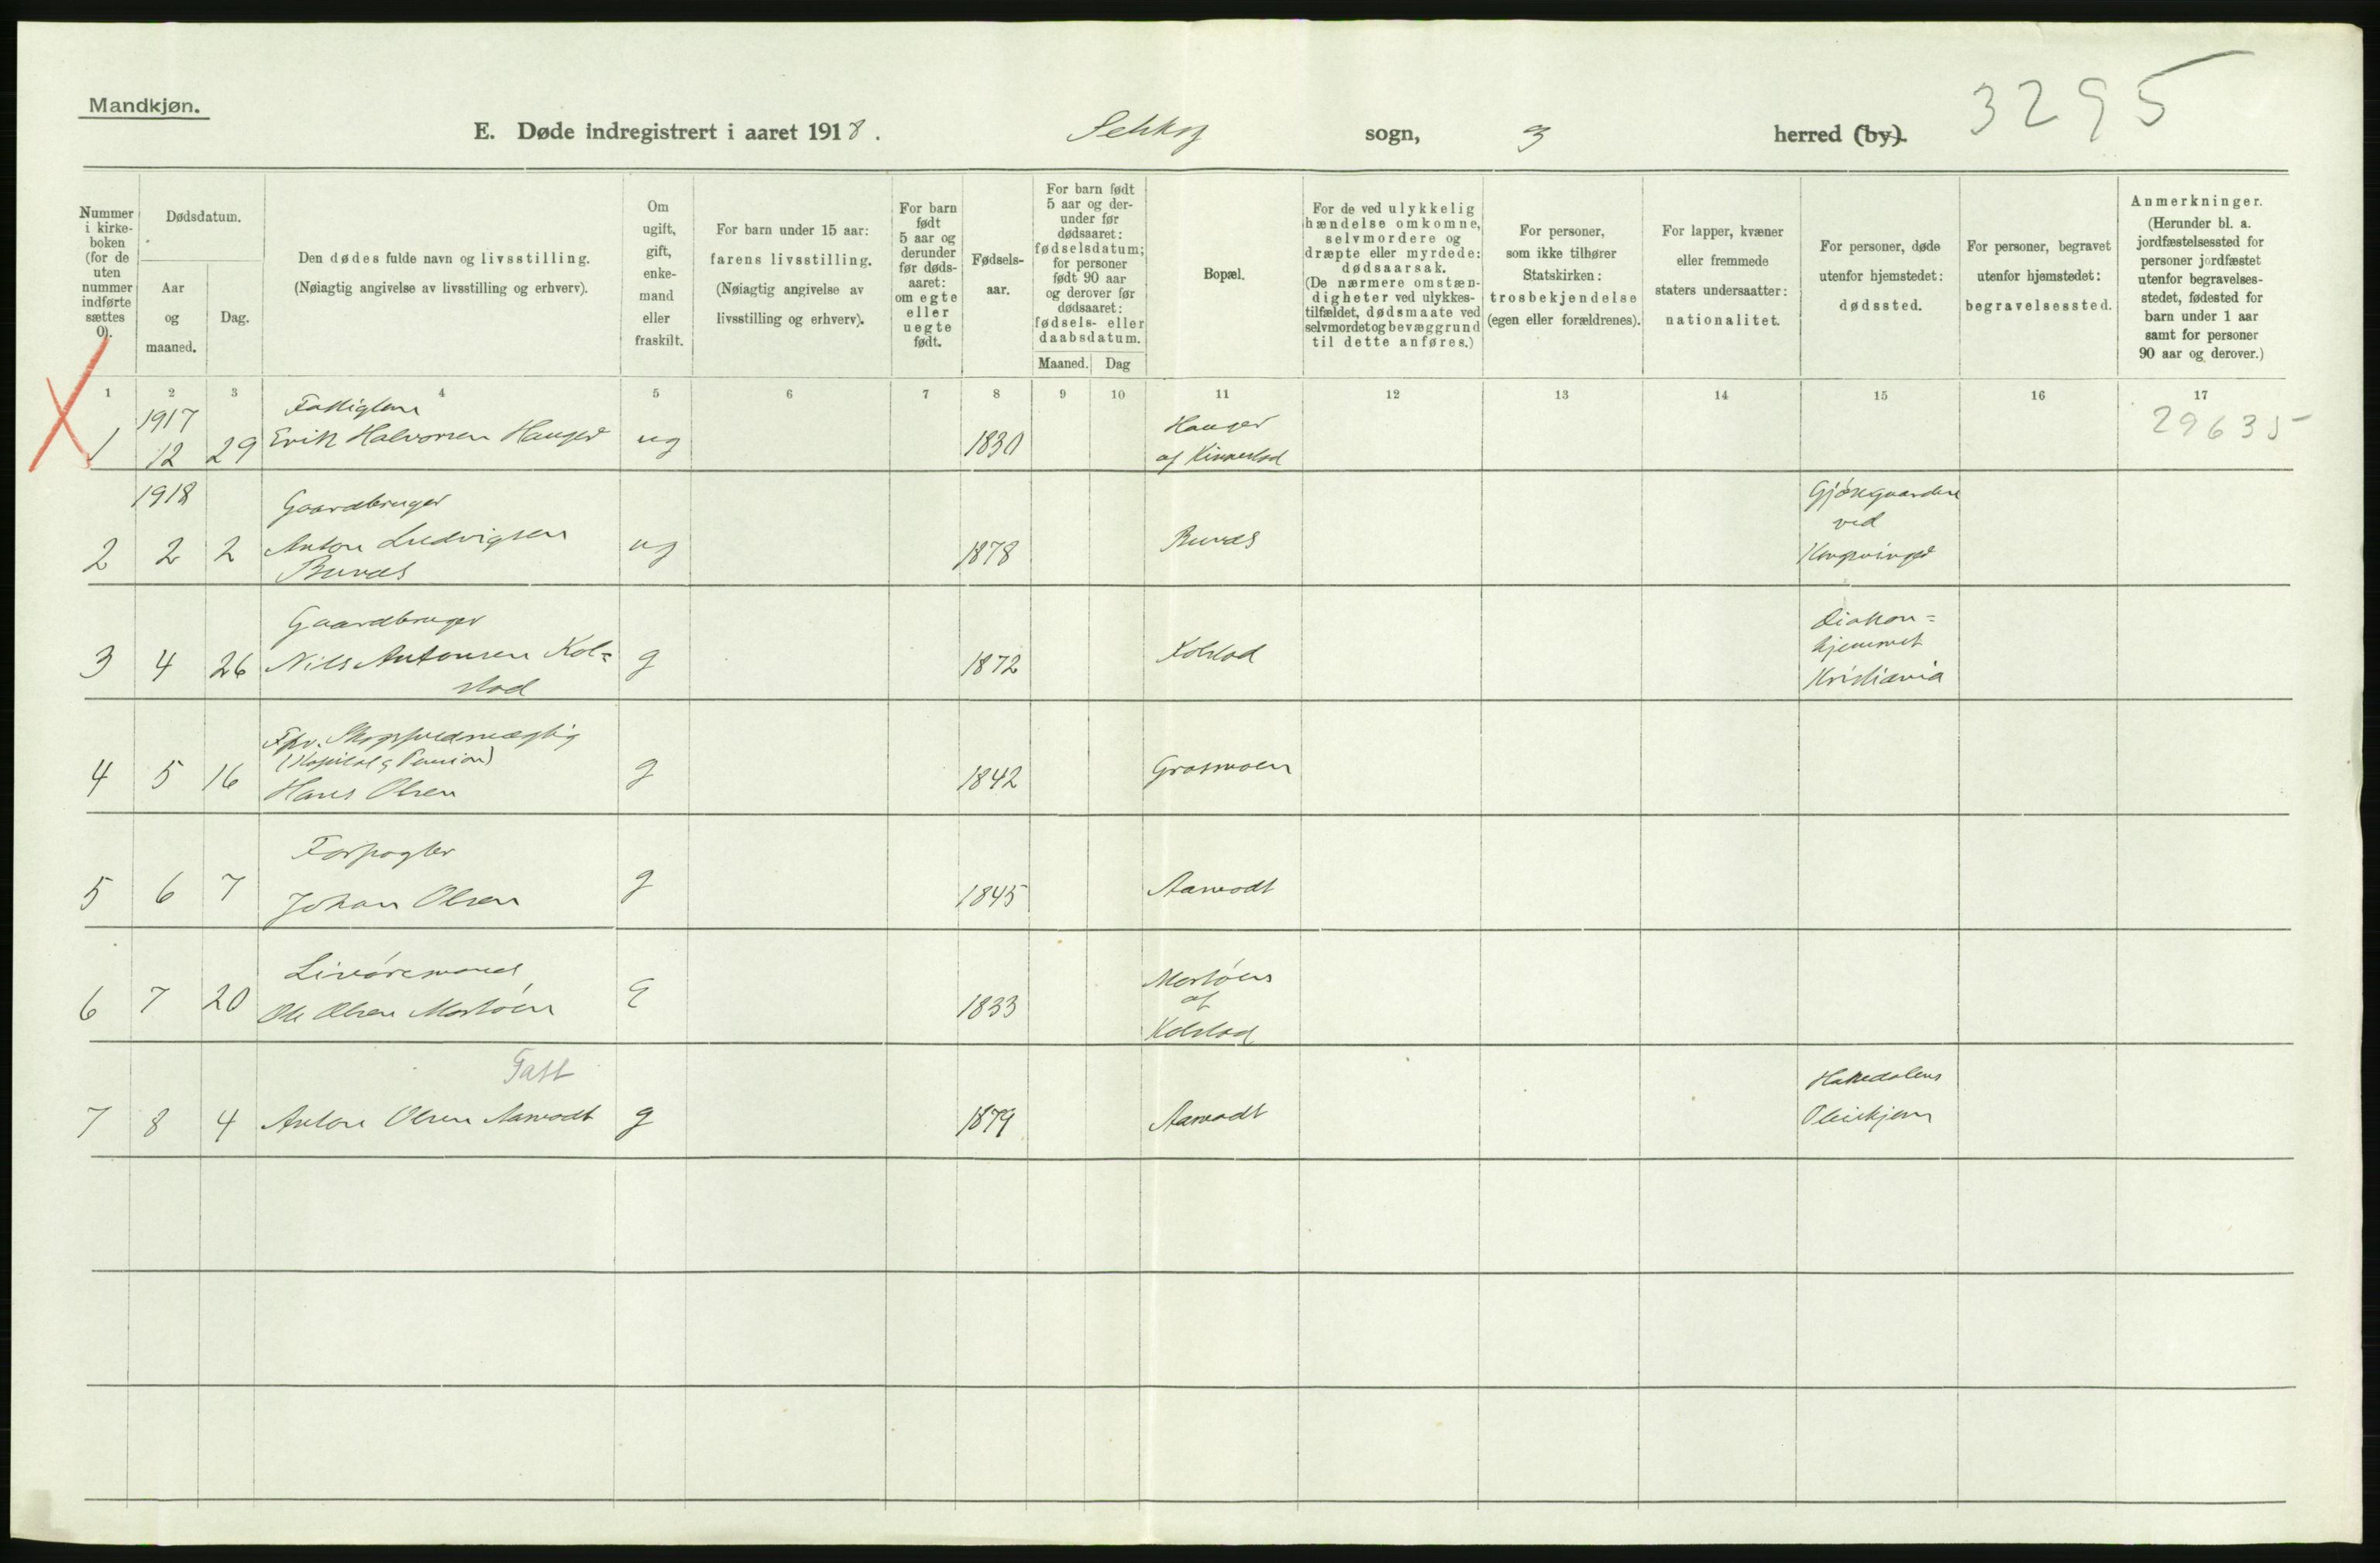 Mandkjøn.
E. Døde indregistrert i aaret 1918. sogn, herred (by).
3295
Nummer i kirkeboken (for de uten nummer indførte sættes 0).
Dødsdatum.
Aar og maaned.
Dag.
Den dødes fulde navn og livsstilling.
(Nøiagtig angivelse av livsstilling og erhverv).
Om ugift, gift, enkemand eller fraskilt.
For barn under 15 aar: farens livsstilling.
(Nøiagtig angivelse av livsstilling og erhverv).
For barn født 5 aar og derunder før dødsaaret: om egte eller uegte født.
Fødselsaar.
For barn født 5 aar og derunder før dødsaaret: fødselsdatum; for personer født 90 aar og derover før dødsaaret: fødsels- eller daabsdatum.
Maaned. Dag
Bopæl.
For de ved ulykkelig hændelse omkomne, selvmordere og dræpte eller myrdede: dødsaarsak.
(De nærmere omstændigheter ved ulykkestilfældet, dødsmaate ved selvmordet og bevæggrund til dette anføres.)
For personer, som ikke tilhører Statskirken: trosbekjendelse (egen eller forældrenes).
For lapper, kvæner eller fremmede staters undersaatter: nationalitet.
For personer, døde utenfor hjemstedet: dødssted.
For personer, begravet utenfor hjemstedet: begravelsessted.
Anmerkninger.
(Herunder bl. a. jordfæstelsessted for personer jordfæstet utenfor begravelsesstedet, fødested for barn under 1 aar samt for personer 90 aar og derover.)
1 2 3 4 5 6 7 8 9 10 11 12 13 14 15 16 17
1917 Fattiglem Hauger 29635
1 12 29 Erik Halvorsen Hauger ug 1830 af
1918 Gaardbruger
ved
2 2 2 Anton Ludvigsen ug 1878 Buraas
Buraas
Gaardbruger Diakon=
hjemmet
3 4 26 Nils Antonsen Kol= g 1872 Kolstad
stad Kristiania
4 5 16 Hans Olsen g 1842 Grasmoen
Forpagter
5 6 7 Johan Olsen g 1845 Aamodt
6 7 20 Ole Olsen E 1833
af
Kolstad
Fatt Hakedalens
7 8 4 Anton Olsen Aamodt g 1879 Aamodt